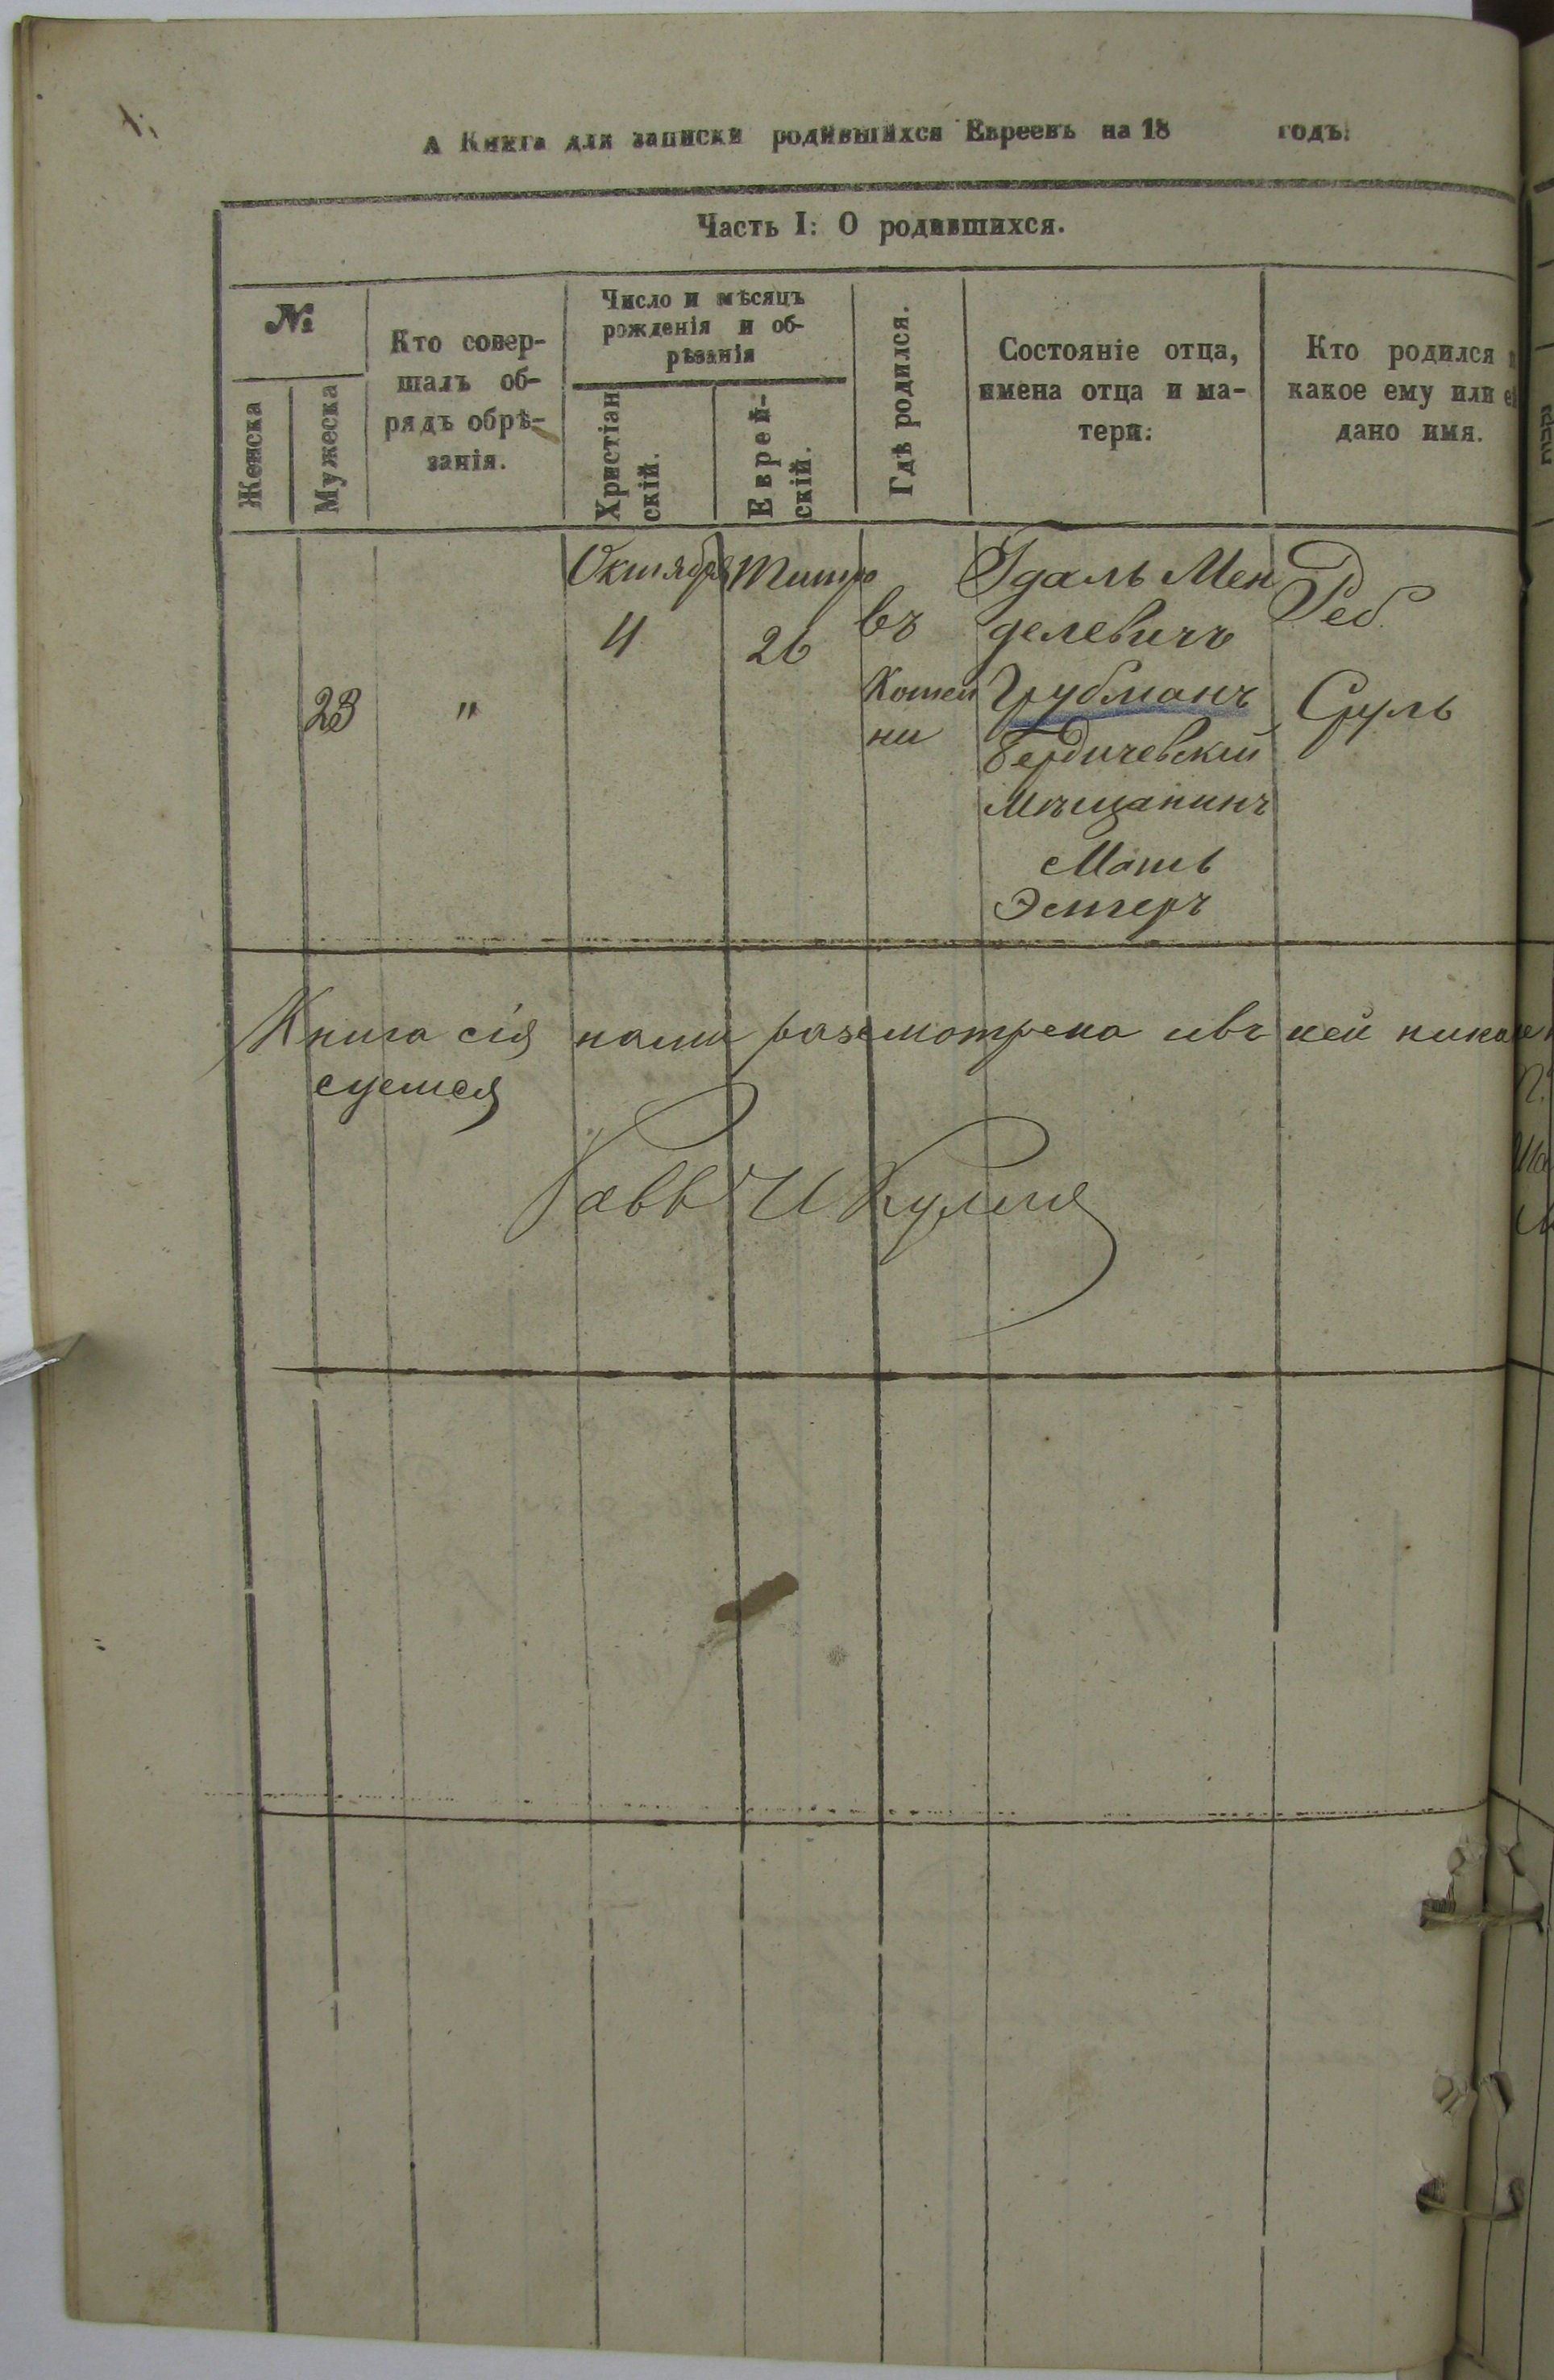 А Книга для записки родившихся Евреевъ на 18 годъ.
Часть I: О родившихся.
№
Женска
Мужеска
Кто совер-
шалъ об-
рядъ обрѣ-
занія.
Число и мѣсяцъ
рожденія и об-
рѣзанія
Христіан
скій.
Еврей-
скій.
Гдѣ родился.
Состояніе отца,
имена отца и ма-
тери:
Кто родился
какое ему или
дано имя.
23
"
Октября
4
Тишре
26
въ
Котел
ни
Гдаль Мен
делевичъ
Грубманъ
Бердичевскій
Мѣщанинъ
Мать
Эстеръ
Реб.
Сруль
Книга сія нами разсмотрена ивъ ней
суется
Равв